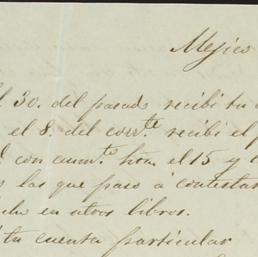 Mejico
30. del pasado recibi tu
el 8. del corr.te recibi el
con cuam.to hta. el 15 y
las que paso á contestar
en otros libros.
tu cuenta particular